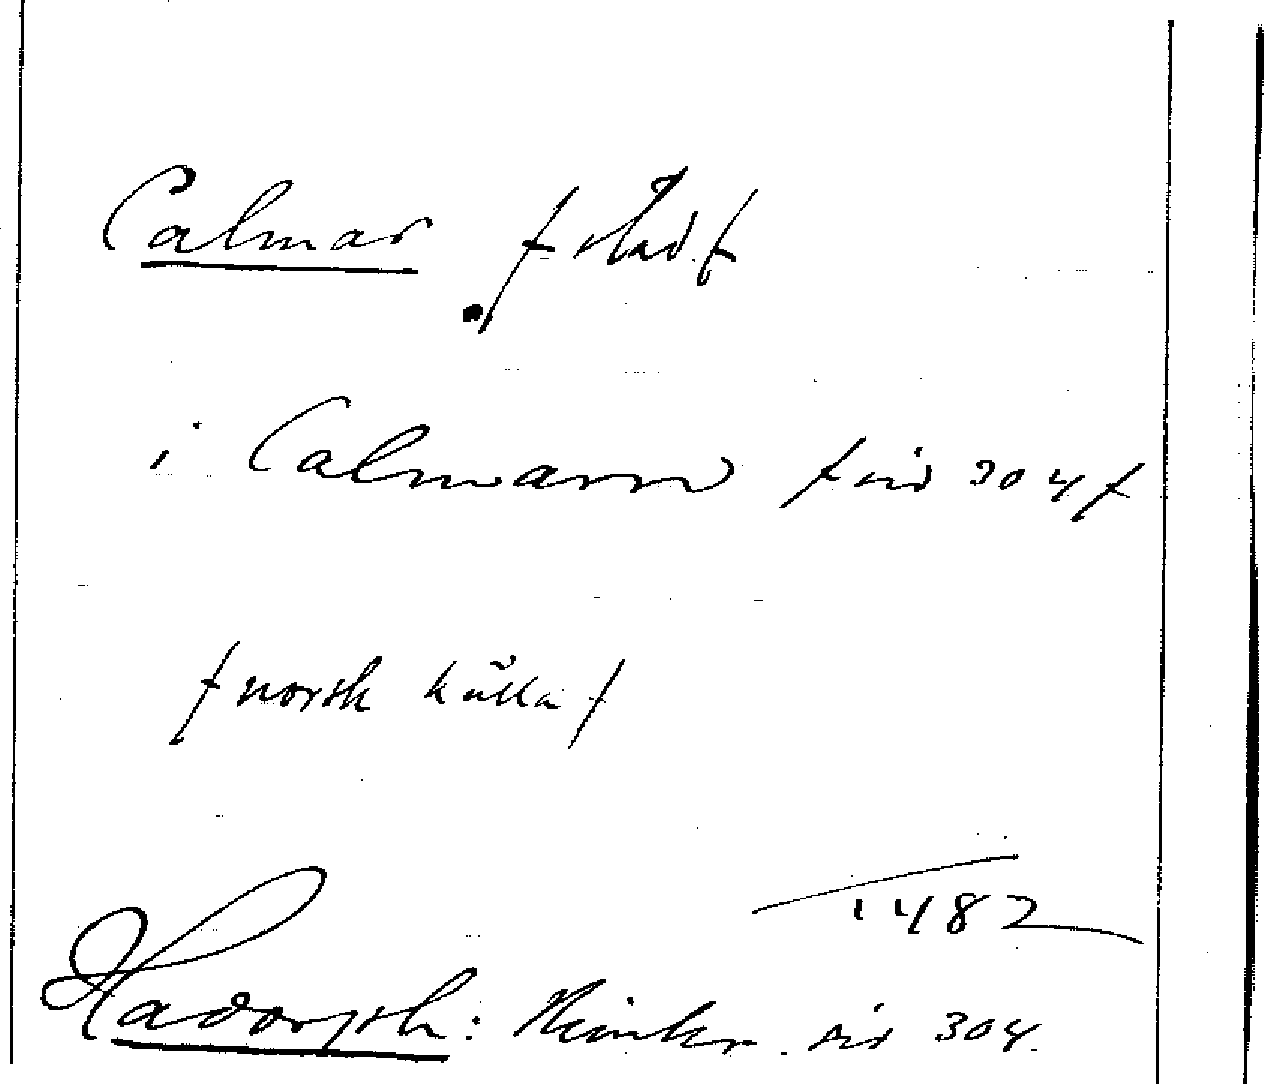 Calmar /: stad :/
i Calmarne /: sid 304 :/
/: norsk källa :/
1482
Hadorph: Rimkr. sid 304.